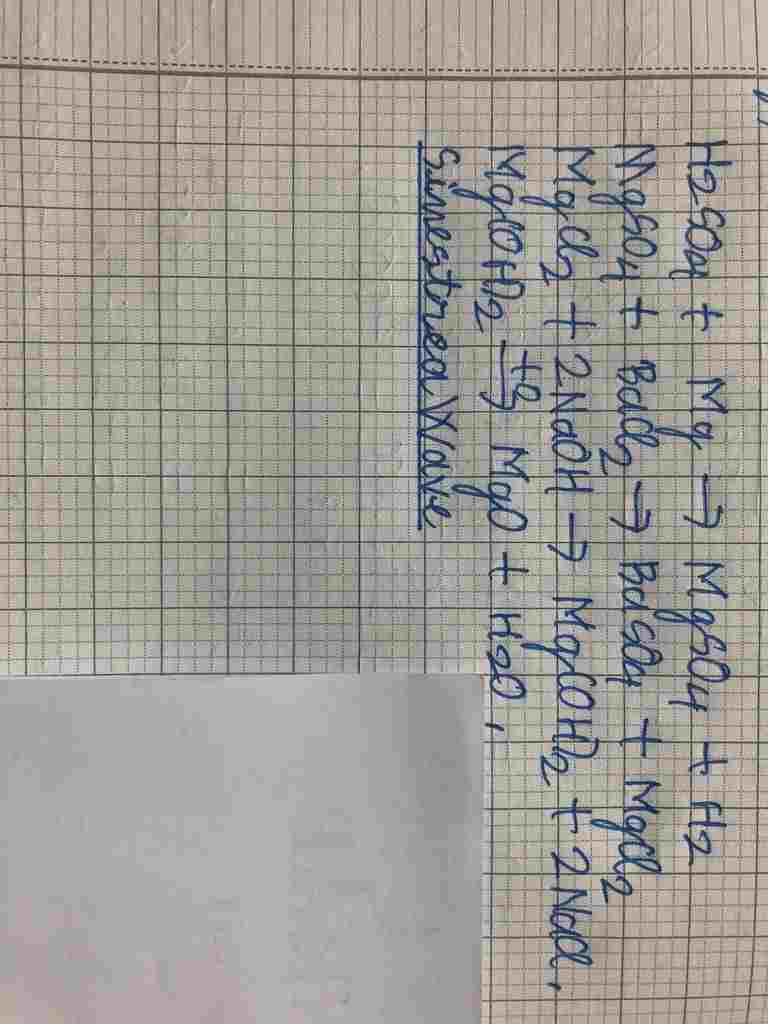 H2SO4 + Mg → MgSO4 + H2
MgSO4 + BaCl2 → BaSO4 + MgCl2
MgCl2 + 2NaOH → Mg(OH)2 + 2NaCl,
Mg(OH)2 →(t°) MgO + H2O,
SimestreaWave